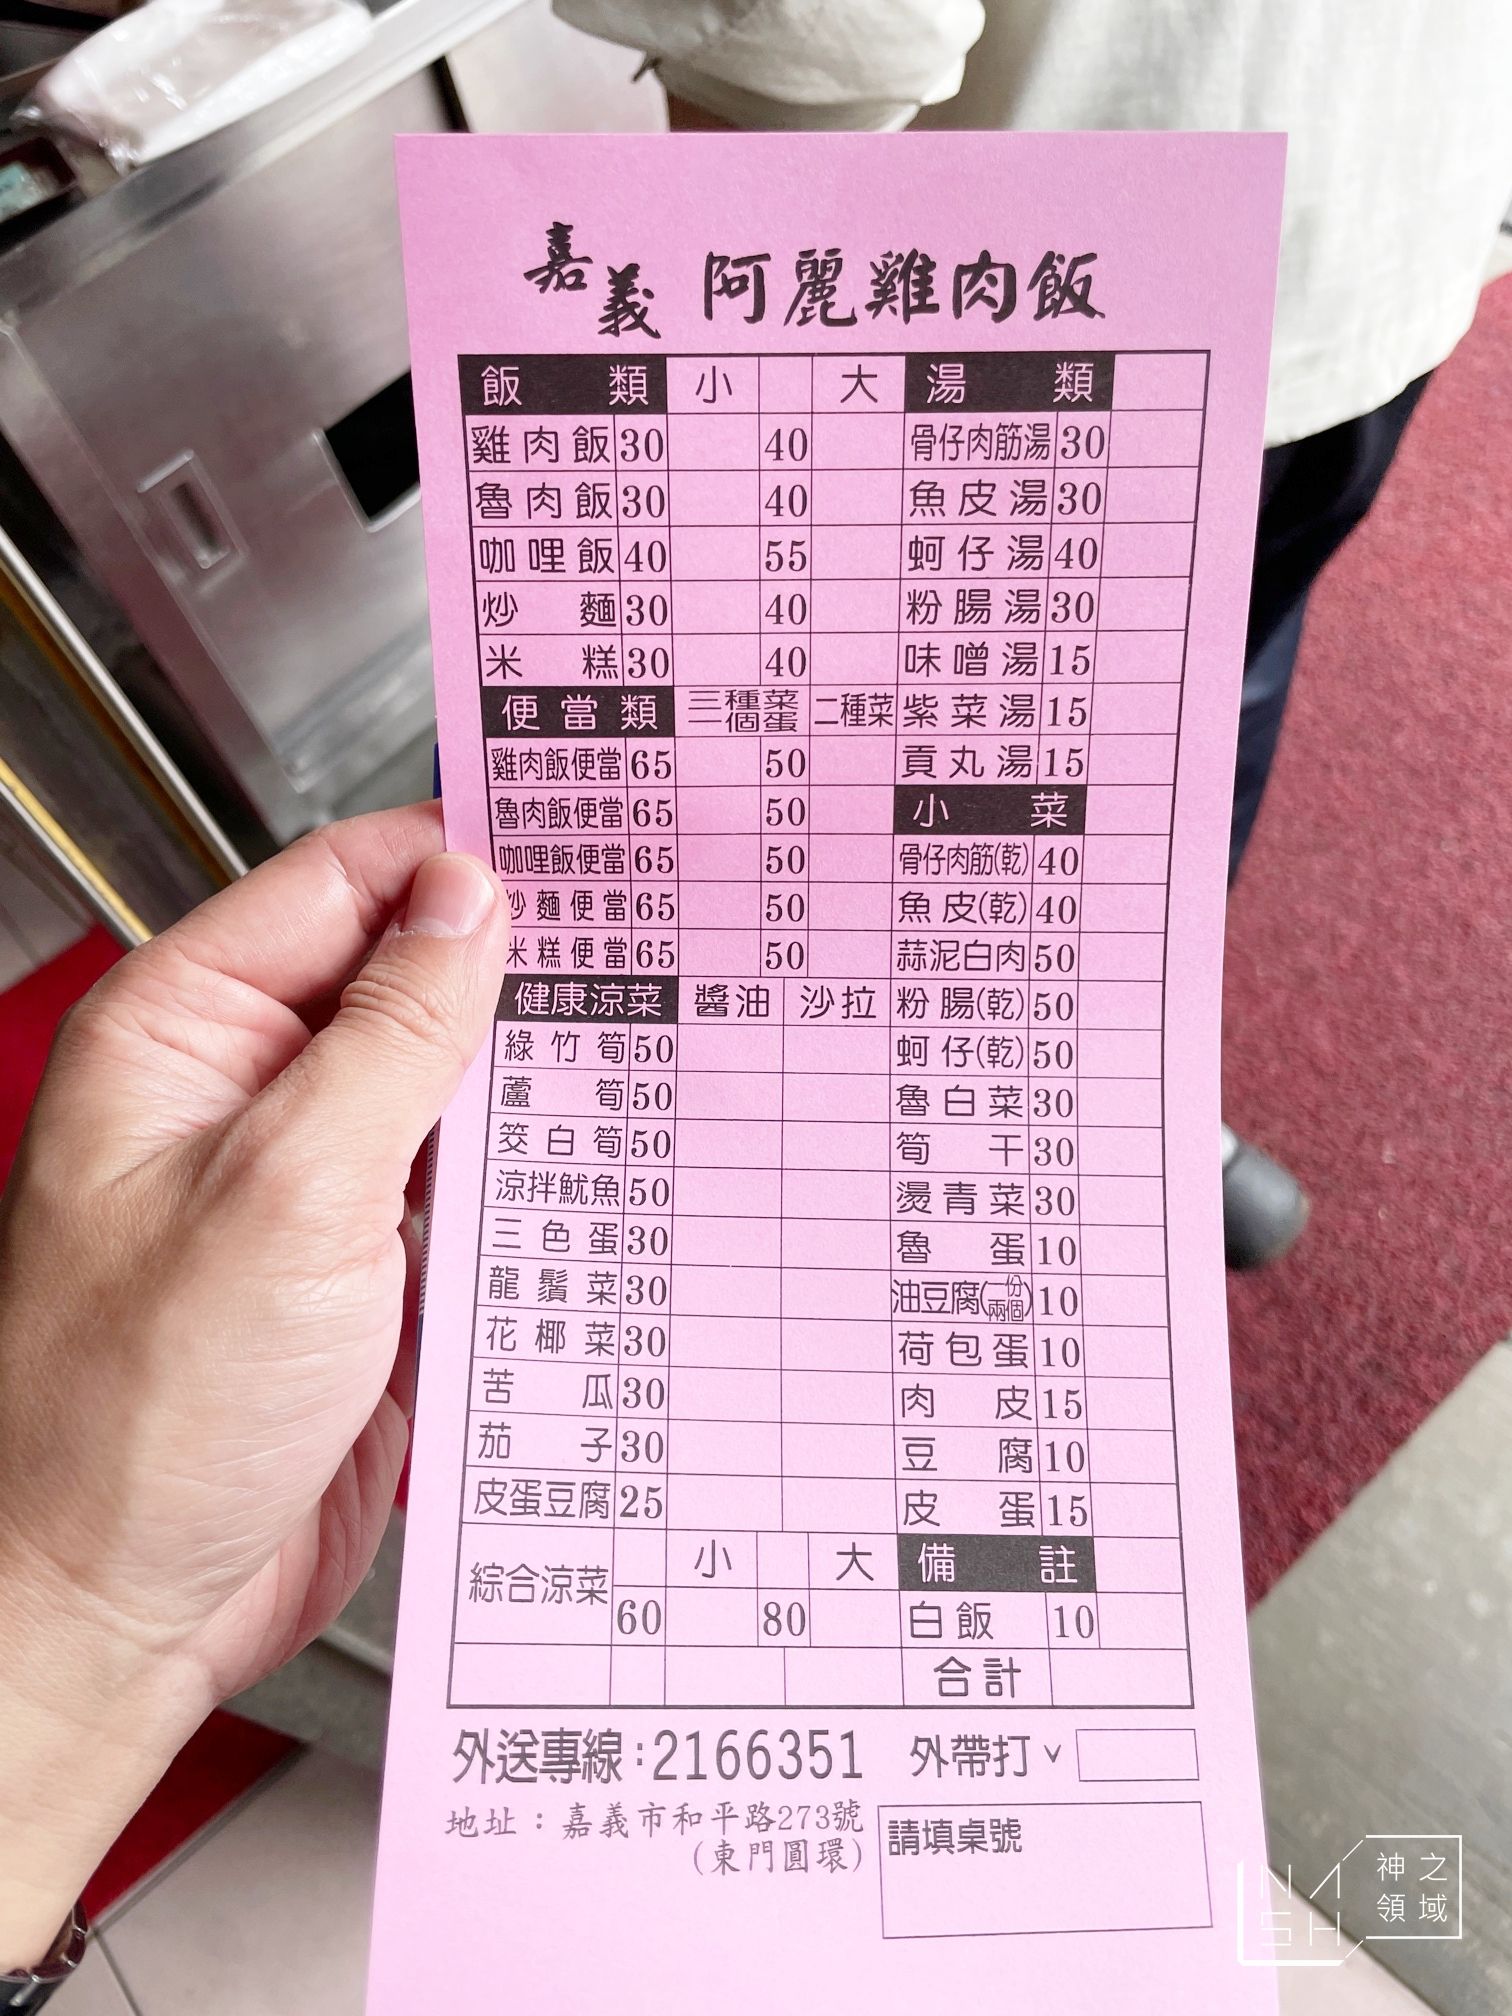 嘉義 阿麗雞肉飯
飯類 小 大 湯類
雞肉飯 30 40 骨仔肉筋湯 30
魯肉飯 30 40 魚皮湯 30
咖哩飯 40 55 蚵仔湯 40
炒麵 30 40 粉腸湯 30
米糕 30 40 味噌湯 15
便當類 三種菜一個蛋 二種菜 紫菜湯 15
雞肉飯便當 65 50 貢丸湯 15
魯肉飯便當 65 50 小菜
咖哩飯便當 65 50 骨仔肉筋(乾) 40
炒麵便當 65 50 魚皮(乾) 40
米糕便當 65 50 蒜泥白肉 50
健康涼菜 醬油 沙拉 粉腸(乾) 50
綠竹筍 50 蚵仔(乾) 50
蘆筍 50 魯白菜 30
筊白筍 50 筍干 30
涼拌魷魚 50 燙青菜 30
三色蛋 30 魯蛋 10
龍鬚菜 30 油豆腐(一份兩個) 10
花椰菜 30 荷包蛋 10
苦瓜 30 肉皮 15
茄子 30 豆腐 10
皮蛋豆腐 25 皮蛋 15
綜合涼菜 小 大 備註
60 80 白飯 10
合計
外送專線:2166351 外帶打ˇ
地址：嘉義市和平路273號
(東門圓環)
請填桌號
NASH
神之
領域